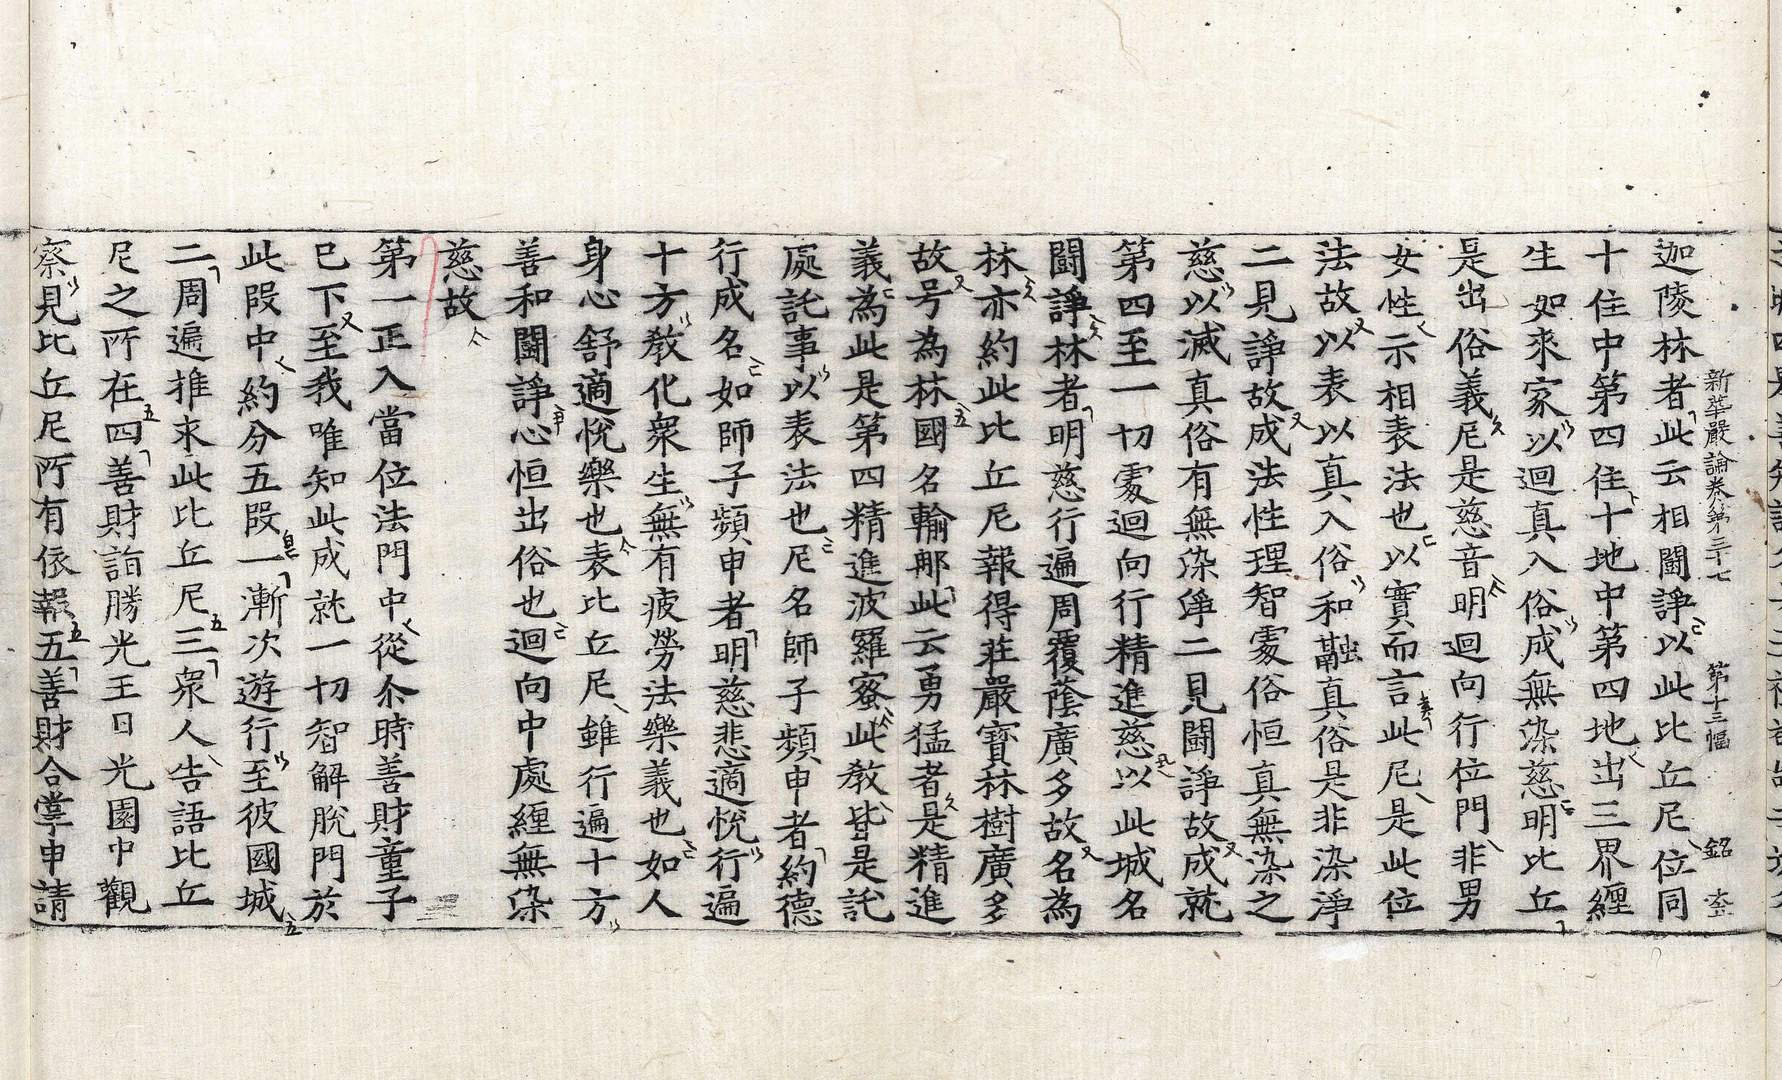 新華嚴論卷第三十七 第十三幅 銘
迦陵林者此云相鬪諍以此比丘尼位同
十住中第四住十地中第四地出三界纏
生如來家以迴真入俗成無染慈明比丘
是出俗義尼是慈音明迴向行位門非男
女性示相表法也以實而言此尼是此位
法故以表以真入俗和融真俗是非染淨
二見諍故成法性理智處俗恒真無染之
慈以滅真俗有無染淨二見鬪諍故成就
第四至一切處迴向行精進慈以此城名
鬪諍林者明慈行遍周覆蔭廣多故名為
林亦約此比丘尼報得莊嚴寶林樹廣多
故号為林國名輸那此云勇猛者是精進
義為此是第四精進波羅蜜此教皆是託
處託事以表法也尼名師子頻申者約德
行成名如師子頻申者明慈悲適悅行遍
十方教化衆生無有疲勞法樂義也如人
身心舒適悅樂也表比丘尼雖行遍十方
善和鬪諍心恒出俗也迴向中處纏無染
慈故
第一正入當位法門中從尒時善財童子
已下至我唯知此成就一切智解脫門於
此段中約分五段一漸次遊行至彼國城
二周遍推求此比丘尼三衆人告語比丘
尼之所在四善財詣勝光王日光園中觀
察見比丘尼所有依報五善財合掌申請